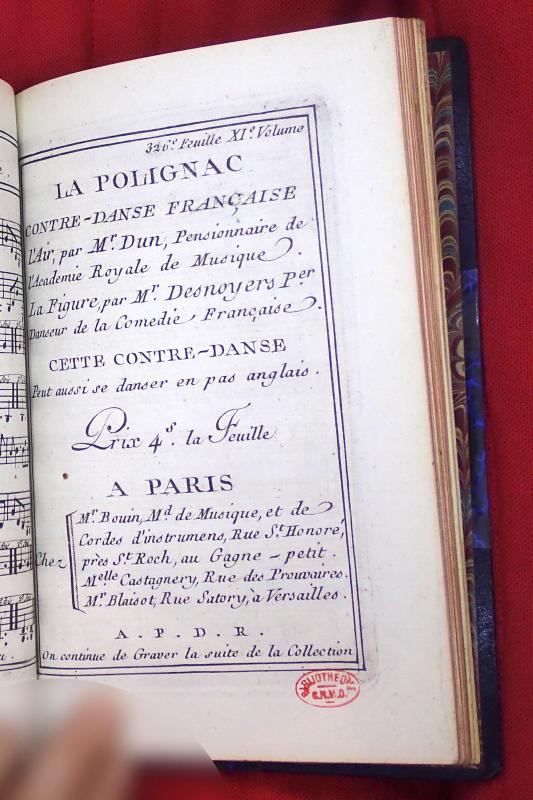 326.e Feuille XI.e Volume
LA POLIGNAC
CONTRE-DANSE FRANÇAISE
l'Air, par M.r Dun, Pensionnaire de
l'Academie Royale de Musique.
La Figure, par M.r Desnoyers P.er
Danseur de la Comedie Française.
CETTE CONTRE-DANSE
Peut aussi se danser en pas anglais.
Prix 4.s la Feuille
A PARIS
Chez
M.r Bouin, M.d de Musique, et de
Cordes d'instrumens, Rue S.t Honoré,
près S.t Roch, au Gagne-petit.
M.elle Castagnery, Rue des Prouvaires.
M.r Blaisot, Rue Satory, à Versailles.
A. P. D. R.
On continue de Graver la suite de la Collection
BIBLIOTHEQUE
C.N.M.D.